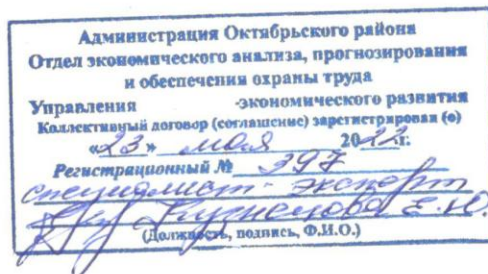 Администрация Октябрьского района
Отдел экономического анализа, прогнозирования
и обеспечения охраны труда
Управления -экономического развития
Коллективный договор (соглашение) зарегистрирован (о)
«23» мая 2022г.
Регистрационный № 397
специалист-эксперт
Кузнецова Е.Ю.
(Должность, подпись, Ф.И.О.)